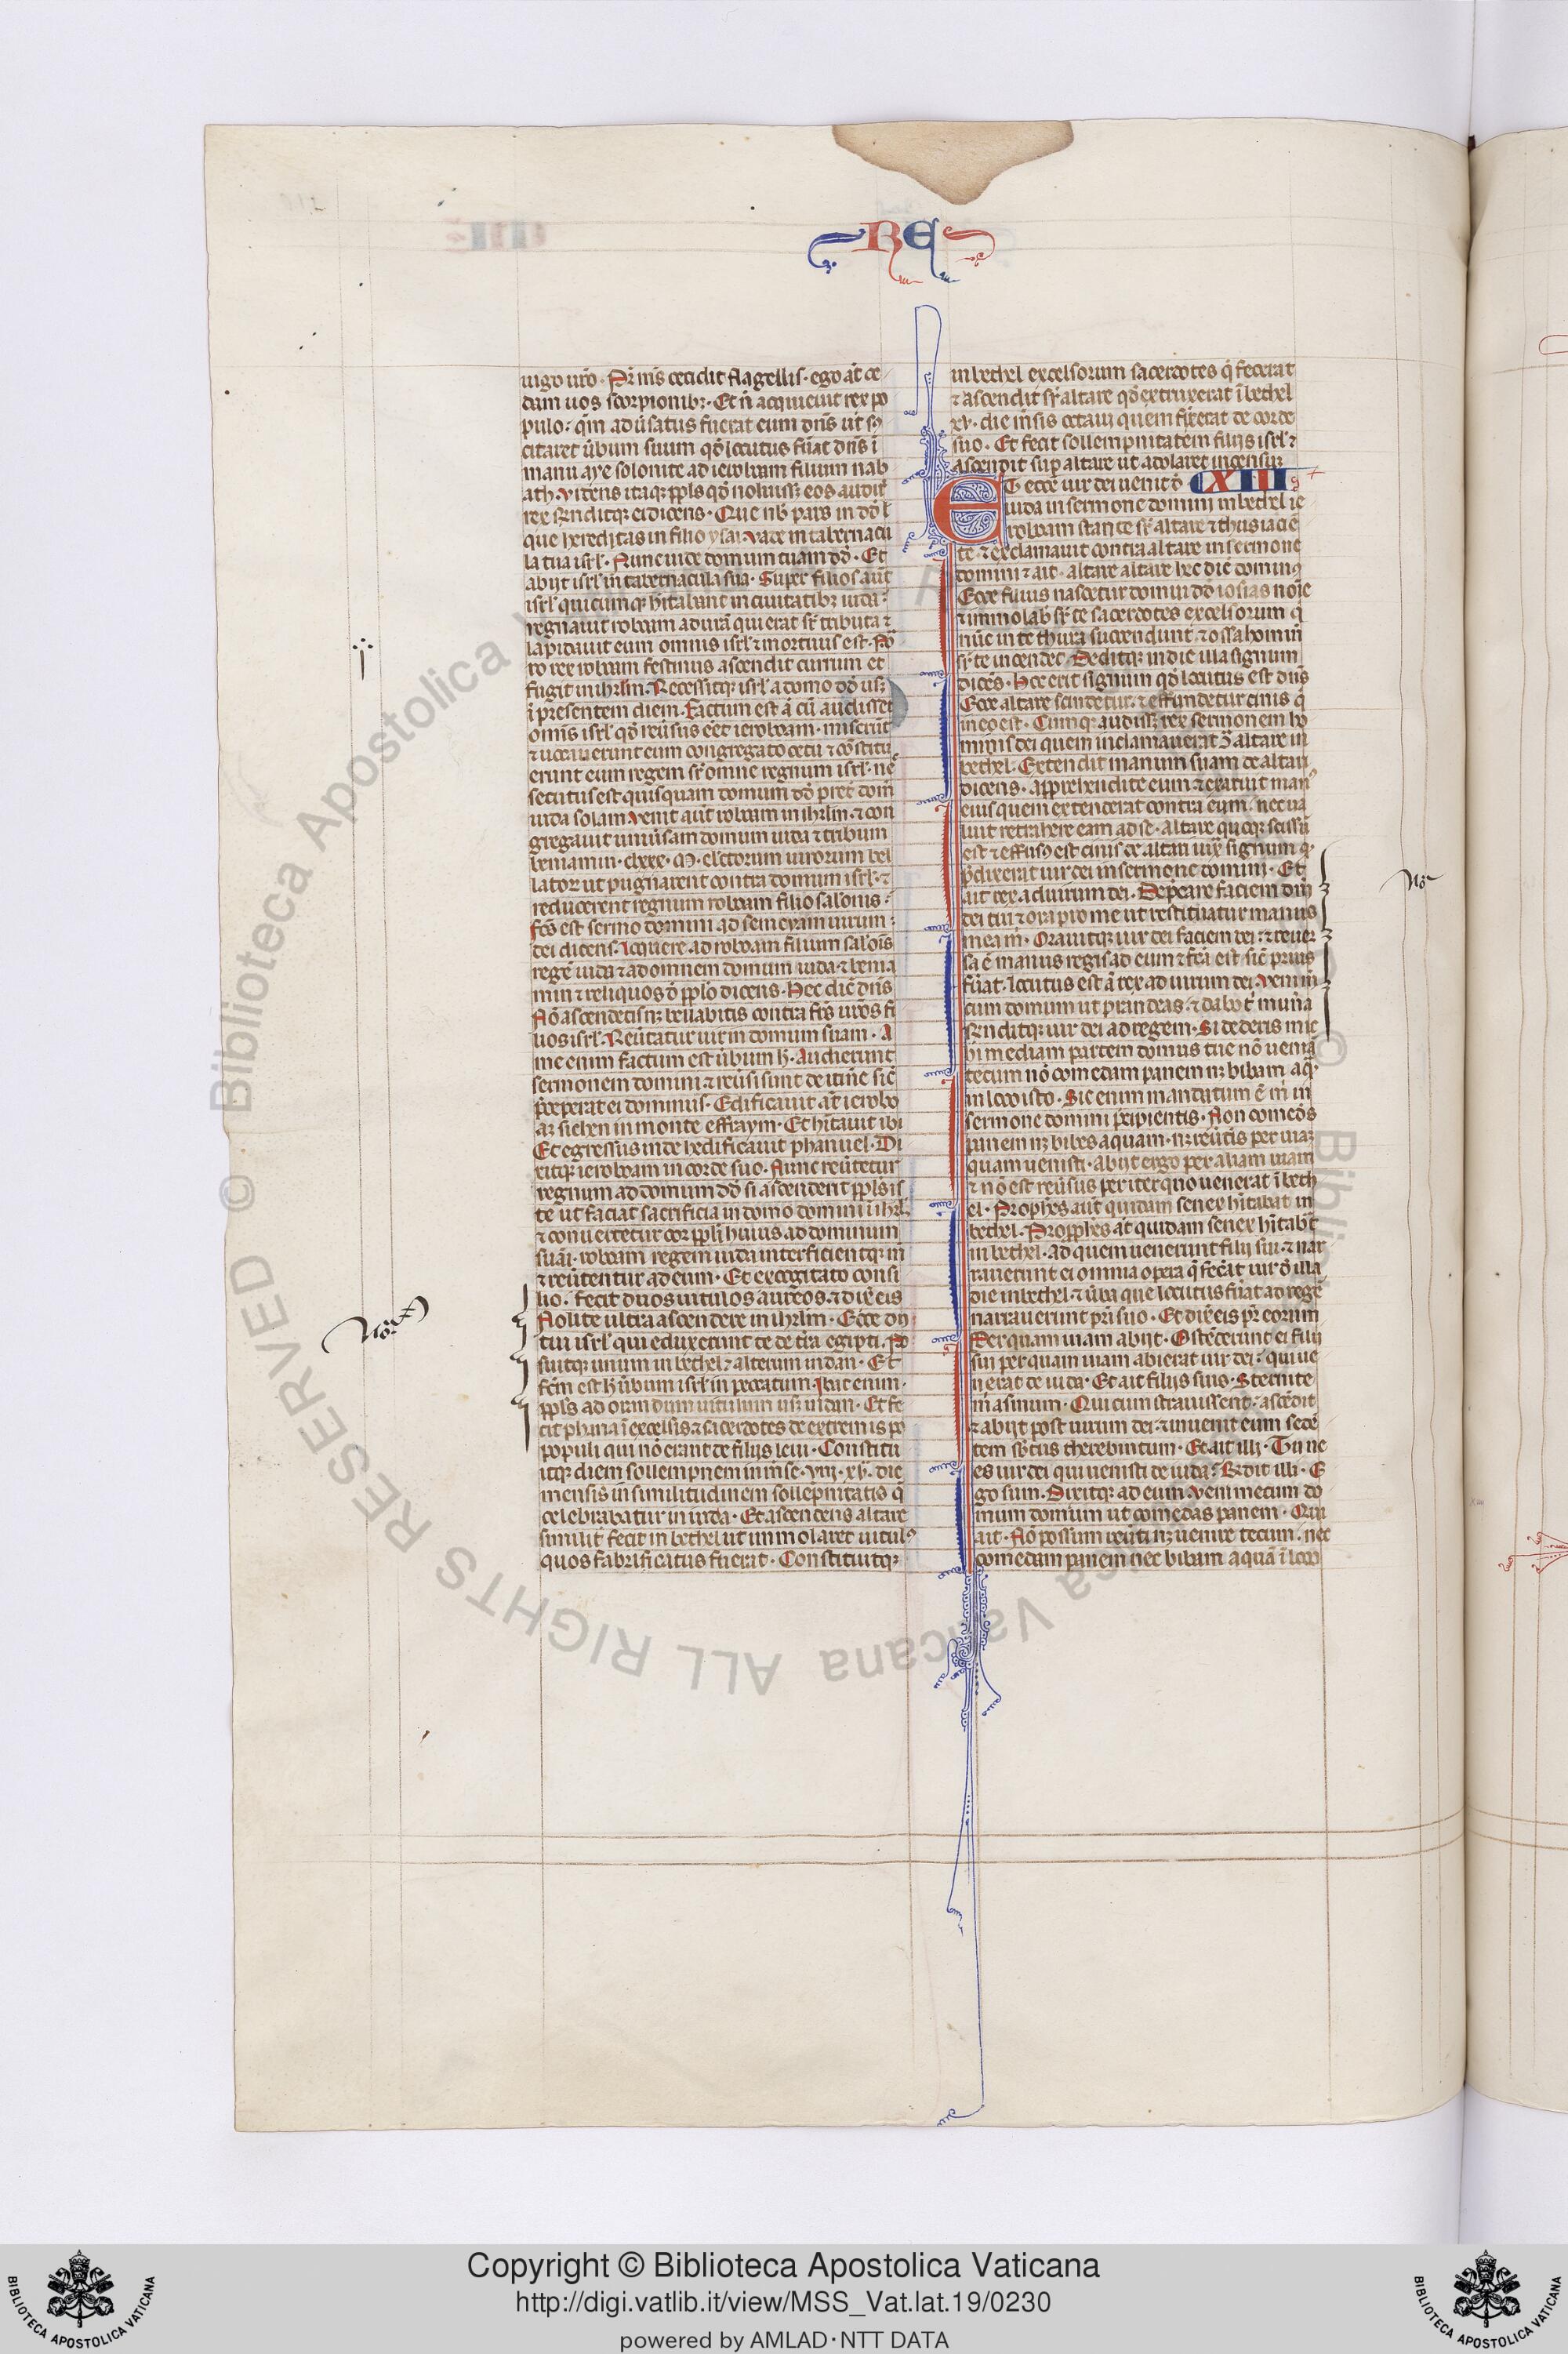 RE
iugo uro · Pr̄ ms̄ cecidit flagellis · ego at̄ ce
dam uos scorpionibꝫ · Et n̄ acquieuit rex po
pulo : qm̄ aduersatus fuerat eum dns̄ ut sus
citaret ūbum suum qd̄ locutus fūat dns̄ ī
manu aye solonite ad ieroboam filium nab
ath · Videns itaqꝫ ppl̄s qd̄ noluissꝫ eos audire
rex rn̄ditqꝫ ei dicens · Que nb̄ pars in dd̄ l̄
que hereditas in filio ysai · Vade in tabernacu
la tua isrl̄ · Nunc uide domum tuam dd̄ · Et
abijt isrl̄ in tabernacula sua · Super filios aut̄
isrl̄ quicumqꝫ hītabant in ciuitatibꝫ iuda :
regnauit roboam adurā qui erat sr̄ tributa ⁊
lapidauit eum omnis isrl̄ ⁊ mortuus est · Por
ro rex roboam festinus ascendit currum et
fugit in ihrlm̄ · Recessitqꝫ isrl̄ a domo dd̄ usqꝫ
ī presentem diem · Factum est aū cū audisset
omīs isrl̄ qd̄ reūsus eēt ieroboam · miserūt
⁊ uocauerunt eum congregato cetu ⁊ cōstitu
erunt eum regem sr̄ omne regnum isrl̄ · nec
secutus est quisquam domum dd̄ pret̄ dom̄
iuda solam · Venit aut̄ roboam in ihrlm̄ · ⁊ con
gregauit uniūsam domum iuda ⁊ tribum
beniamin · clxxx · M · electorum uirorum bel
lator ut pugnarent contra domum isrl̄ · ⁊
reducerent regnum roboam filio salonis :
fcs̄ est sermo domini ad semeyam uirum :
dei dicens · Loquere ad roboam filium salois̄
regē iuda ⁊ ad omnem domum iuda · ⁊ benia
min ⁊ reliquos d̄ pplo̅ dicens · Hec dic̄ dns̄
Nō ascendetis nꝫ bellabitis contra fr̄s uros̄ fi
lios isrl̄ · Reūtatur uir in domum suam · A
me enim factum est ūbum h̄ · Audierunt
sermonem domini ⁊ reūsi sunt de itinē sic̄
p̄ceperat ei dominus · Edificauit at̄ ierobo
aꝫ sichen in monte effraym · Et hītauit ibi
Et egressus inde hedificauit phanuel · Di
xitqꝫ ieroboam in corde suo · Nunc reūtetur
regnum ad domum dd̄ si ascenderit ppl̄s is
te ut faciat sacrificia in domo domini ī ihrl̄
⁊ conuertetur cor ppli̅ huius ad dominum
suūm · roboam regem iuda interficientqꝫ m̄
⁊ reūtentur ad eum · Et excogitato consi
lio · fecit duos uitulos aureos · ⁊ dix̄ eis
Nolite ultra ascendere in ihrlm̄ · Ecce dij
tui isrl̄ qui eduxerunt te de tr̄a egipti · Po
suitqꝫ unum in bethel ⁊ alterum in dan · Et
fcm̄ est h̄ ūbum isrl̄ in peccatum · Ibat enim ·
ppl̄s ad orandum uitulum usqꝫ in dan · Et fe
cit phana ī excelsis ⁊ sacerdotes de extremis po
populi qui nō erant de filijs leui · Constitu
itqꝫ diem sollempnem in mēse · viij · xv · die
mensis in similitudinem sollepnitatis que
celebrabatur in iuda · Et ascendens altare
similit̄ fecit in bethel ut immolaret uitulꝰ
quos fabrificatus fuerat · Constituitqꝫ
in bethel excelsorum sacerdotes q̄ fecerat
⁊ ascendit sr̄ altare qd̄ extruxerat ī bethel
xv · die mēsis octaui quem finxerat de corde
suo · Et fecit sollempnitatem filijs isrl̄ ⁊
ascendit sup̄ altare ut adolaret incensum
ET ecce uir dei uenit d̄ XIII
iuda in sermone domini in bethel ie
roboam stante sr̄ altare ⁊ thus iacie
te · ⁊ exclamauit contra altare in sermone
domini ⁊ ait · altare altare hec dic̄ dominꝰ
Ecce filius nascetur domui dd̄ iosias noīe
⁊ immolab̄ sr̄ te sacerdotes excelsorum q̄
nūc in te thura succendunt · ⁊ ossa hominū
sr̄ te incendet · Deditqꝫ in die illa signum
dicēs · Hoc erit signum qd̄ locutus est dns̄
Ecce altare scindetur · ⁊ effundetur cinis q̄
in eo est · Cumqꝫ audissꝫ rex sermonem ho
minis dei quem inclamauerat ↄ̄ altare in
bethel · Extendit manum suam de altari
dicens · apprehendite eum ⁊ exaruit manꝰ
eius quem extenderat contra eum · nec ua
luit retrahere eam ad se · Altare quoqꝫ scissū
est ⁊ effusꝰ est cinis de altari iux̄ signum qd̄
p̄dixerat uir dei in sermone domini · Et
ait rex ad uirum dei · Dep̄care faciem dni̅
dei tui ⁊ ora pro me ut restituatur manus
mea m̄ · Orauitqꝫ uir dei faciem dei · ⁊ reuer
sa ē manus regis ad eum ⁊ fcā est sic̄ prius
fūat · Locutus est aū rex ad uirum dei · Veni m̄
cum domum ut prandeas · ⁊ dabo t̄ munā
rn̄ditqꝫ uir dei ad regem · Si dederis mic
hi mediam partem domus tue nō ueniā
tecum nō comedam panem nꝫ bibam aqꝫ
in loco isto · Sic enim mandatum ē m̄ in
sermone domini p̄cipientis · Non comedēs
panem nꝫ bibes aquam · nꝫ reūtis per uiaꝫ
quam uenisti · abijt ergo per aliam uiam
⁊ nō est reūsus per iter quo uenerat ī beth
el · Prophēs aut̄ quidam senex hītabat in
bethel · Propphēs at̄ quidam senex hītab̄t
in bethel · ad quem uenerunt filij sui · ⁊ nar
rauerunt ei omnia opera q̄ fecāt uir d̄i illa
die in bethel · ⁊ ūba que locutus fūat ad regē
narrauerunt pr̄i suo · Et dix̄ eis pr̄ eorum
Per quam uiam abijt · Ostēderunt ei filij
sui per quam uiam abierat uir dei · qui ue
nerat de iuda · Et ait filijs suis · Sternite
m̄ asinum · Qui cum strauissent · ascēdit
⁊ abijt post uirum dei · ⁊ inuenit eum sedē
tem sb̄tus therebintum · Et ait illi · Tu ne
es uir dei qui uenisti de iuda · Rn̄dit illi · E
go sum · Dixitqꝫ ad eum · Veni mecum do
mum domum ut comedas panem · Qui
ait · Nō possum reūti nꝫ uenire tecum · nec
comedam panem nec bibam aquā ī loco
Nō
Nor
Copyright © Biblioteca Apostolica Vaticana
http://digi.vatlib.it/view/MSS_Vat.lat.19/0230
powered by AMLAD·NTT DATA
BIBLIOTECA APOSTOLICA VATICANA
BIBLIOTECA APOSTOLICA VATICANA
© Biblioteca Apostolica Vaticana ALL RIGHTS RESERVED